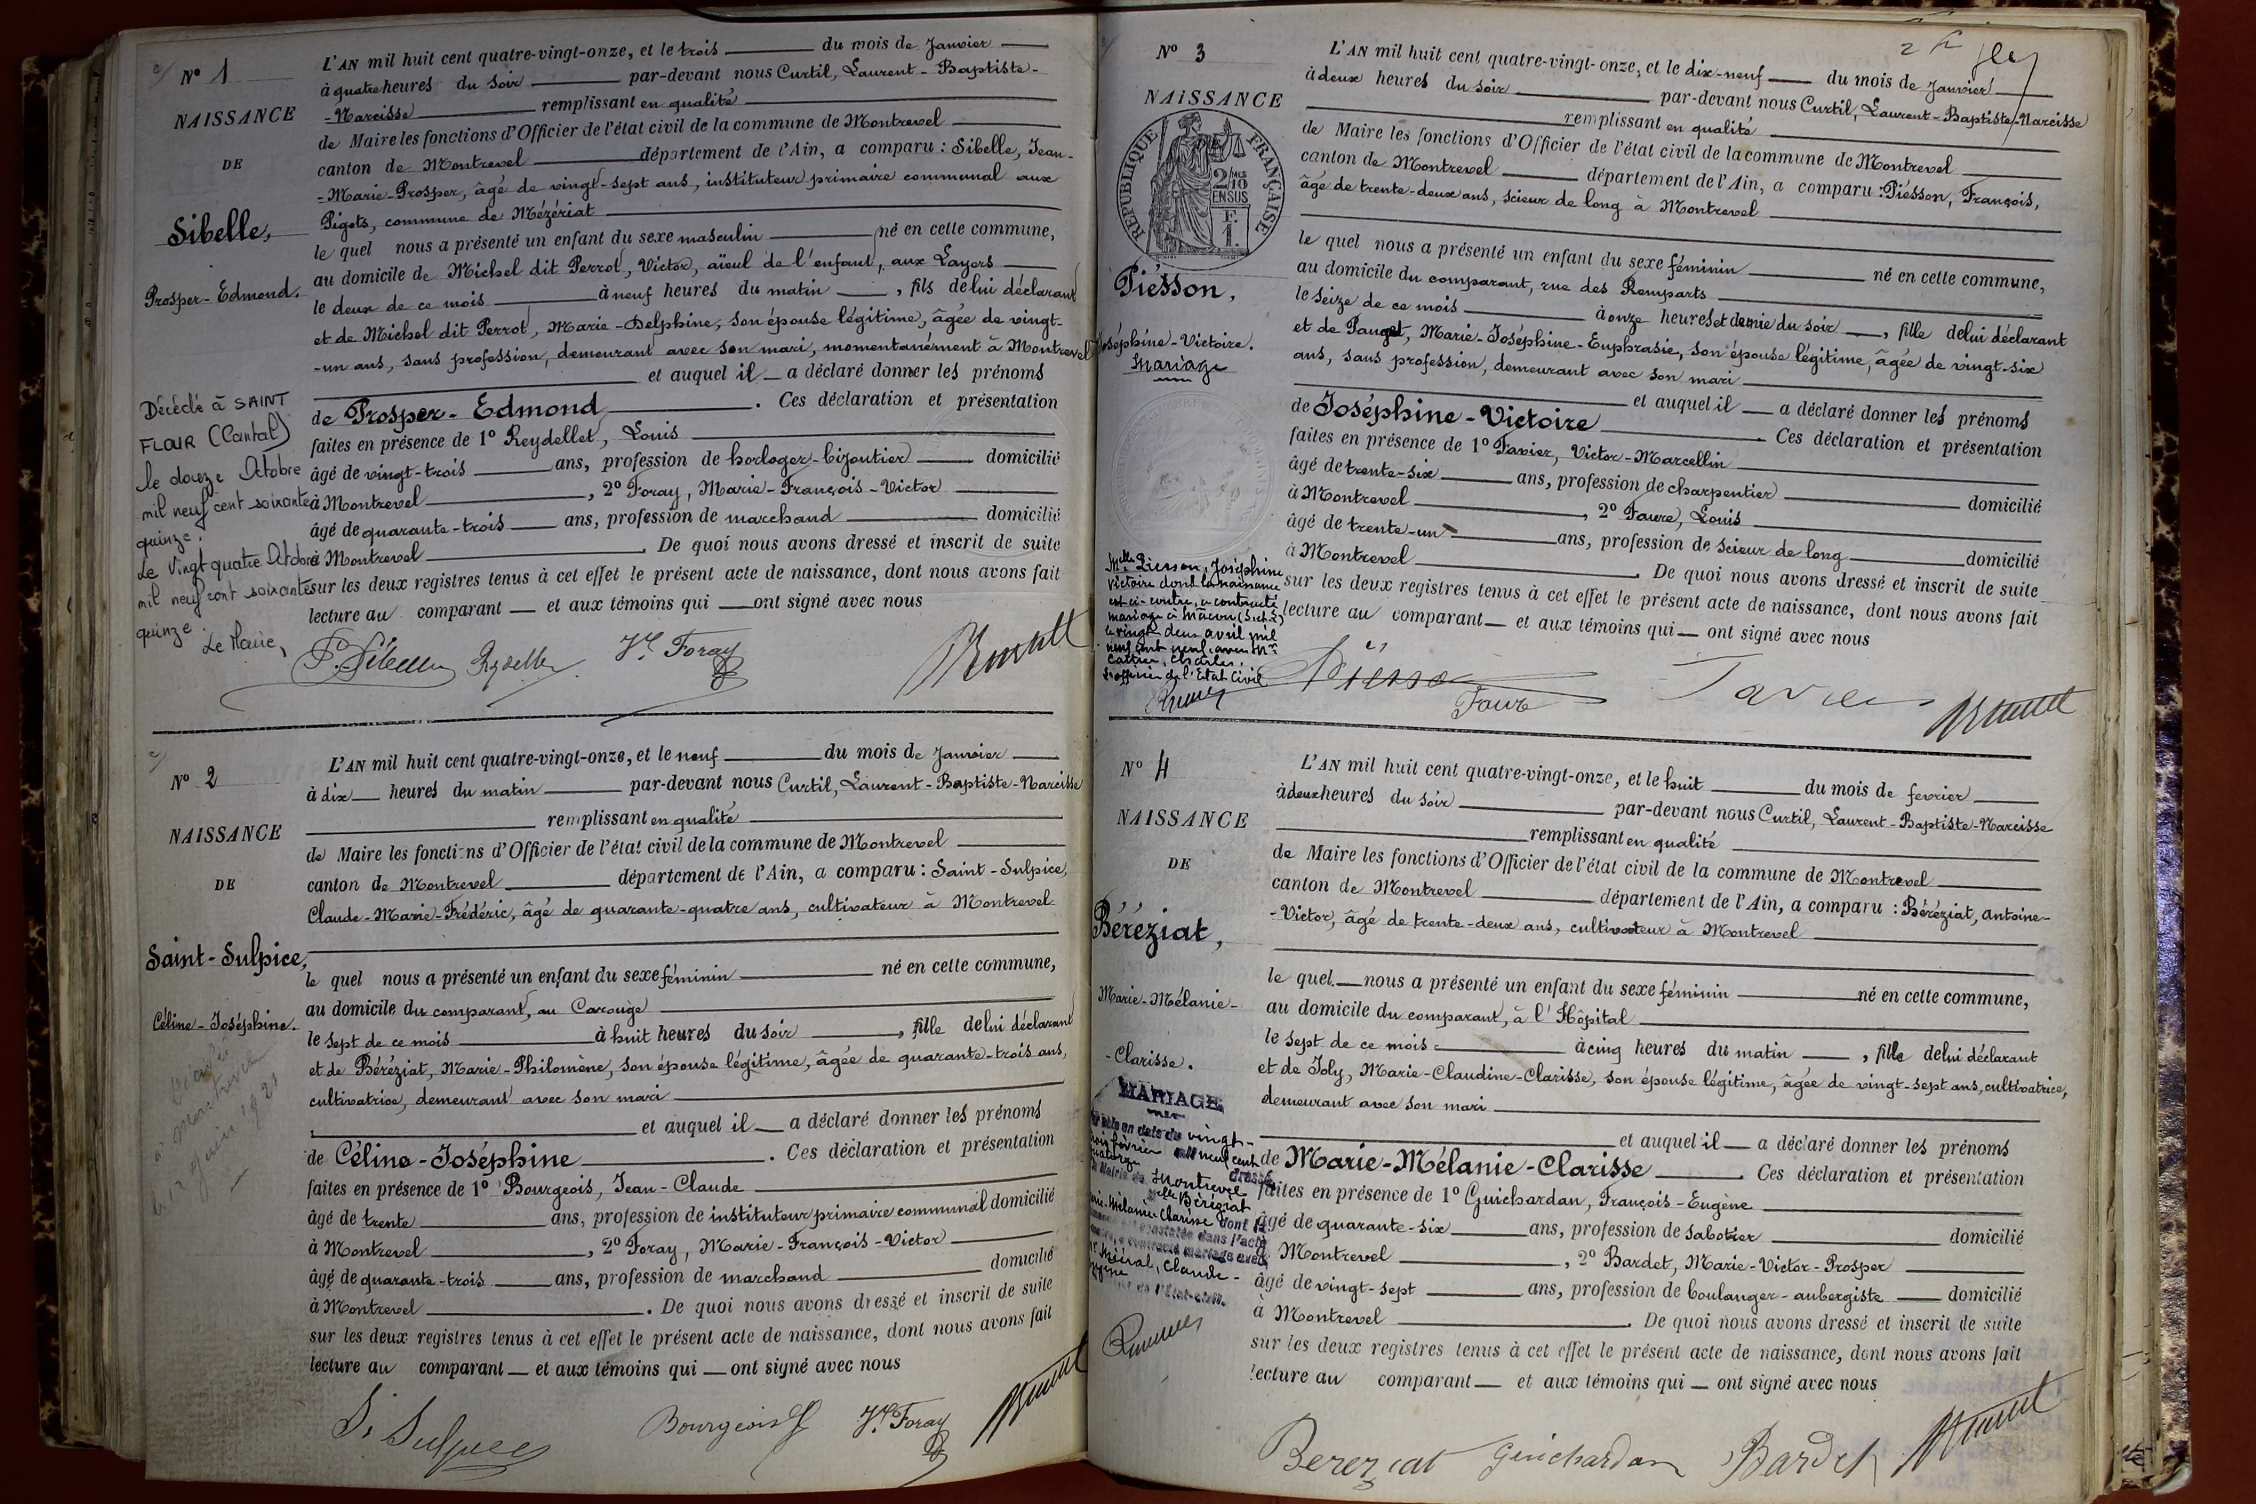 N° 1
NAISSANCE
DE
Sibelle,
Prosper-Edmond.
Décédé à SAINT
FLOUR (Cantal)
le douze Octobre
mil neuf cent soixante
quinze.
Le Vingt quatre Octobre
mil neuf cent soixante
quinze
Le Maire,
L'AN mil huit cent quatre-vingt-onze, et le trois du mois de Janvier
à quatre heures du soir par-devant nous Curtil, Laurent-Baptiste-
-Narcisse remplissant en qualité
de Maire les fonctions d'Officier de l'état civil de la commune de Montrevel
canton de Montrevel département de l'Ain, a comparu : Sibelle, Jean-
-Marie-Prosper, âgé de vingt-sept ans, instituteur primaire communal aux
Pigets, commune de Mézériat
le quel nous a présenté un enfant du sexe masculin né en cette commune,
au domicile de Michel dit Perrot, Victor, aïeul de l'enfant, aux Layers
le deux de ce mois à neuf heures du matin, fils de lui déclarant
et de Michel dit Perrot, Marie-Delphine, son épouse légitime, âgée de vingt-
-un ans, sans profession, demeurant avec son mari, momentanément à Montrevel
et auquel il a déclaré donner les prénoms
de Prosper-Edmond. Ces déclaration et présentation
faites en présence de 1° Reydellet, Louis
âgé de vingt-trois ans, profession de horloger-bijoutier domicilié
à Montrevel, 2° Foray, Marie-François-Victor
âgé de quarante-trois ans, profession de marchand domicilié
à Montrevel. De quoi nous avons dressé et inscrit de suite
sur les deux registres tenus à cet effet le présent acte de naissance, dont nous avons fait
lecture au comparant et aux témoins qui ont signé avec nous
P. Sibelle Reydellet Vr Foray
N° 2
NAISSANCE
DE
Saint-Sulpice,
Céline-Joséphine.
L'AN mil huit cent quatre-vingt-onze, et le neuf du mois de Janvier
à dix heures du matin par-devant nous Curtil, Laurent-Baptiste-Narcisse
remplissant en qualité
de Maire les fonctions d'Officier de l'état civil de la commune de Montrevel
canton de Montrevel département de l'Ain, a comparu : Saint-Sulpice,
Claude-Marie-Frédéric, âgé de quarante-quatre ans, cultivateur à Montrevel
le quel nous a présenté un enfant du sexe féminin né en cette commune,
au domicile du comparant, au Carouge
le sept de ce mois à huit heures du soir, fille de lui déclarant
et de Béréziat, Marie-Philomène, son épouse légitime, âgée de quarante-trois ans,
cultivatrice, demeurant avec son mari
et auquel il a déclaré donner les prénoms
de Céline-Joséphine. Ces déclaration et présentation
faites en présence de 1° Bourgeois, Jean-Claude
âgé de trente ans, profession de instituteur primaire communal domicilié
à Montrevel, 2° Foray, Marie-François-Victor
âgé de quarante-trois ans, profession de marchand domicilié
à Montrevel. De quoi nous avons dressé et inscrit de suite
sur les deux registres tenus à cet effet le présent acte de naissance, dont nous avons fait
lecture au comparant et aux témoins qui ont signé avec nous
St Sulpice Bourgeois Vr Foray
N° 3
NAISSANCE
RÉPUBLIQUE FRANÇAISE
2/10 EN SUS
F. 1.
Piésson,
Joséphine-Victoire.
Mariage
Mlle Piesson, Joséphine
Victoire dont la naissance
est ci-contre, a contracté
mariage à Mâcon (S. et L.)
le vingt deux avril mil
neuf cent neuf, avec Mr
Charles.
L'officier de l'Etat Civil
L'AN mil huit cent quatre-vingt-onze, et le dix-neuf du mois de Janvier
à deux heures du soir par-devant nous Curtil, Laurent-Baptiste-Narcisse
remplissant en qualité
de Maire les fonctions d'Officier de l'état civil de la commune de Montrevel
canton de Montrevel département de l'Ain, a comparu : Piésson, François,
âgé de trente-deux ans, scieur de long à Montrevel
le quel nous a présenté un enfant du sexe féminin né en cette commune,
au domicile du comparant, rue des Remparts
le seize de ce mois à onze heures et demie du soir, fille de lui déclarant
et de Pauget, Marie-Joséphine-Euphrasie, son épouse légitime, âgée de vingt-six
ans, sans profession, demeurant avec son mari
et auquel il a déclaré donner les prénoms
de Joséphine-Victoire. Ces déclaration et présentation
faites en présence de 1° Tavier, Victor-Marcellin
âgé de trente-six ans, profession de charpentier domicilié
à Montrevel, 2° Faure, Louis
âgé de trente-un ans, profession de scieur de long domicilié
à Montrevel. De quoi nous avons dressé et inscrit de suite
sur les deux registres tenus à cet effet le présent acte de naissance, dont nous avons fait
lecture au comparant et aux témoins qui ont signé avec nous
Piesson Faure Tavier
N° 4
NAISSANCE
DE
Béréziat,
Marie-Mélanie-
-Clarisse.
MARIAGE
L'AN mil huit cent quatre-vingt-onze, et le huit du mois de février
à deux heures du soir par-devant nous Curtil, Laurent-Baptiste-Narcisse
remplissant en qualité
de Maire les fonctions d'Officier de l'état civil de la commune de Montrevel
canton de Montrevel département de l'Ain, a comparu : Béréziat, Antoine-
-Victor, âgé de trente-deux ans, cultivateur à Montrevel
le quel nous a présenté un enfant du sexe féminin né en cette commune,
au domicile du comparant, à l'Hôpital
le sept de ce mois à cinq heures du matin, fille de lui déclarant
et de Joly, Marie-Claudine-Clarisse, son épouse légitime, âgée de vingt-sept ans, cultivatrice,
demeurant avec son mari
et auquel il a déclaré donner les prénoms
de Marie-Mélanie-Clarisse. Ces déclaration et présentation
faites en présence de 1° Guichardan, François-Eugène
âgé de quarante-six ans, profession de sabotier domicilié
à Montrevel, 2° Bardet, Marie-Victor-Prosper
âgé de vingt-sept ans, profession de boulanger-aubergiste domicilié
à Montrevel. De quoi nous avons dressé et inscrit de suite
sur les deux registres tenus à cet effet le présent acte de naissance, dont nous avons fait
lecture au comparant et aux témoins qui ont signé avec nous
Bereziat Guichardan Bardet